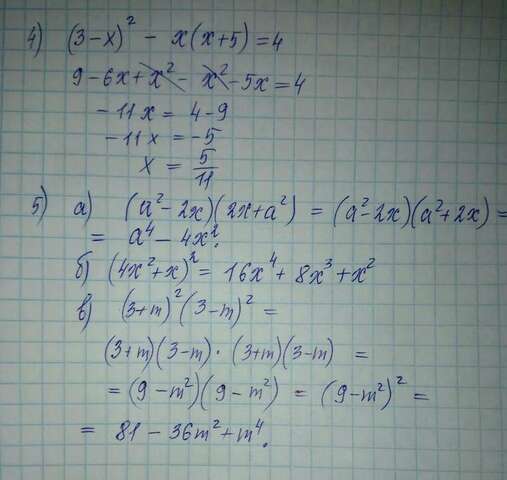 4) (3-x)² - x(x+5) = 4
9-6x+x²-x²-5x=4
-11x = 4-9
-11x = -5
x = 5/11
5) а) (a²-2x)(2x+a²) = (a²-2x)(a²+2x) =
= a⁴ - 4x².
б) (4x²+x)² = 16x⁴ + 8x³ + x²
в) (3+m)²(3-m)² =
(3+m)(3-m)·(3+m)(3-m) =
= (9-m²)(9-m²) = (9-m²)² =
= 81 - 36m² + m⁴.